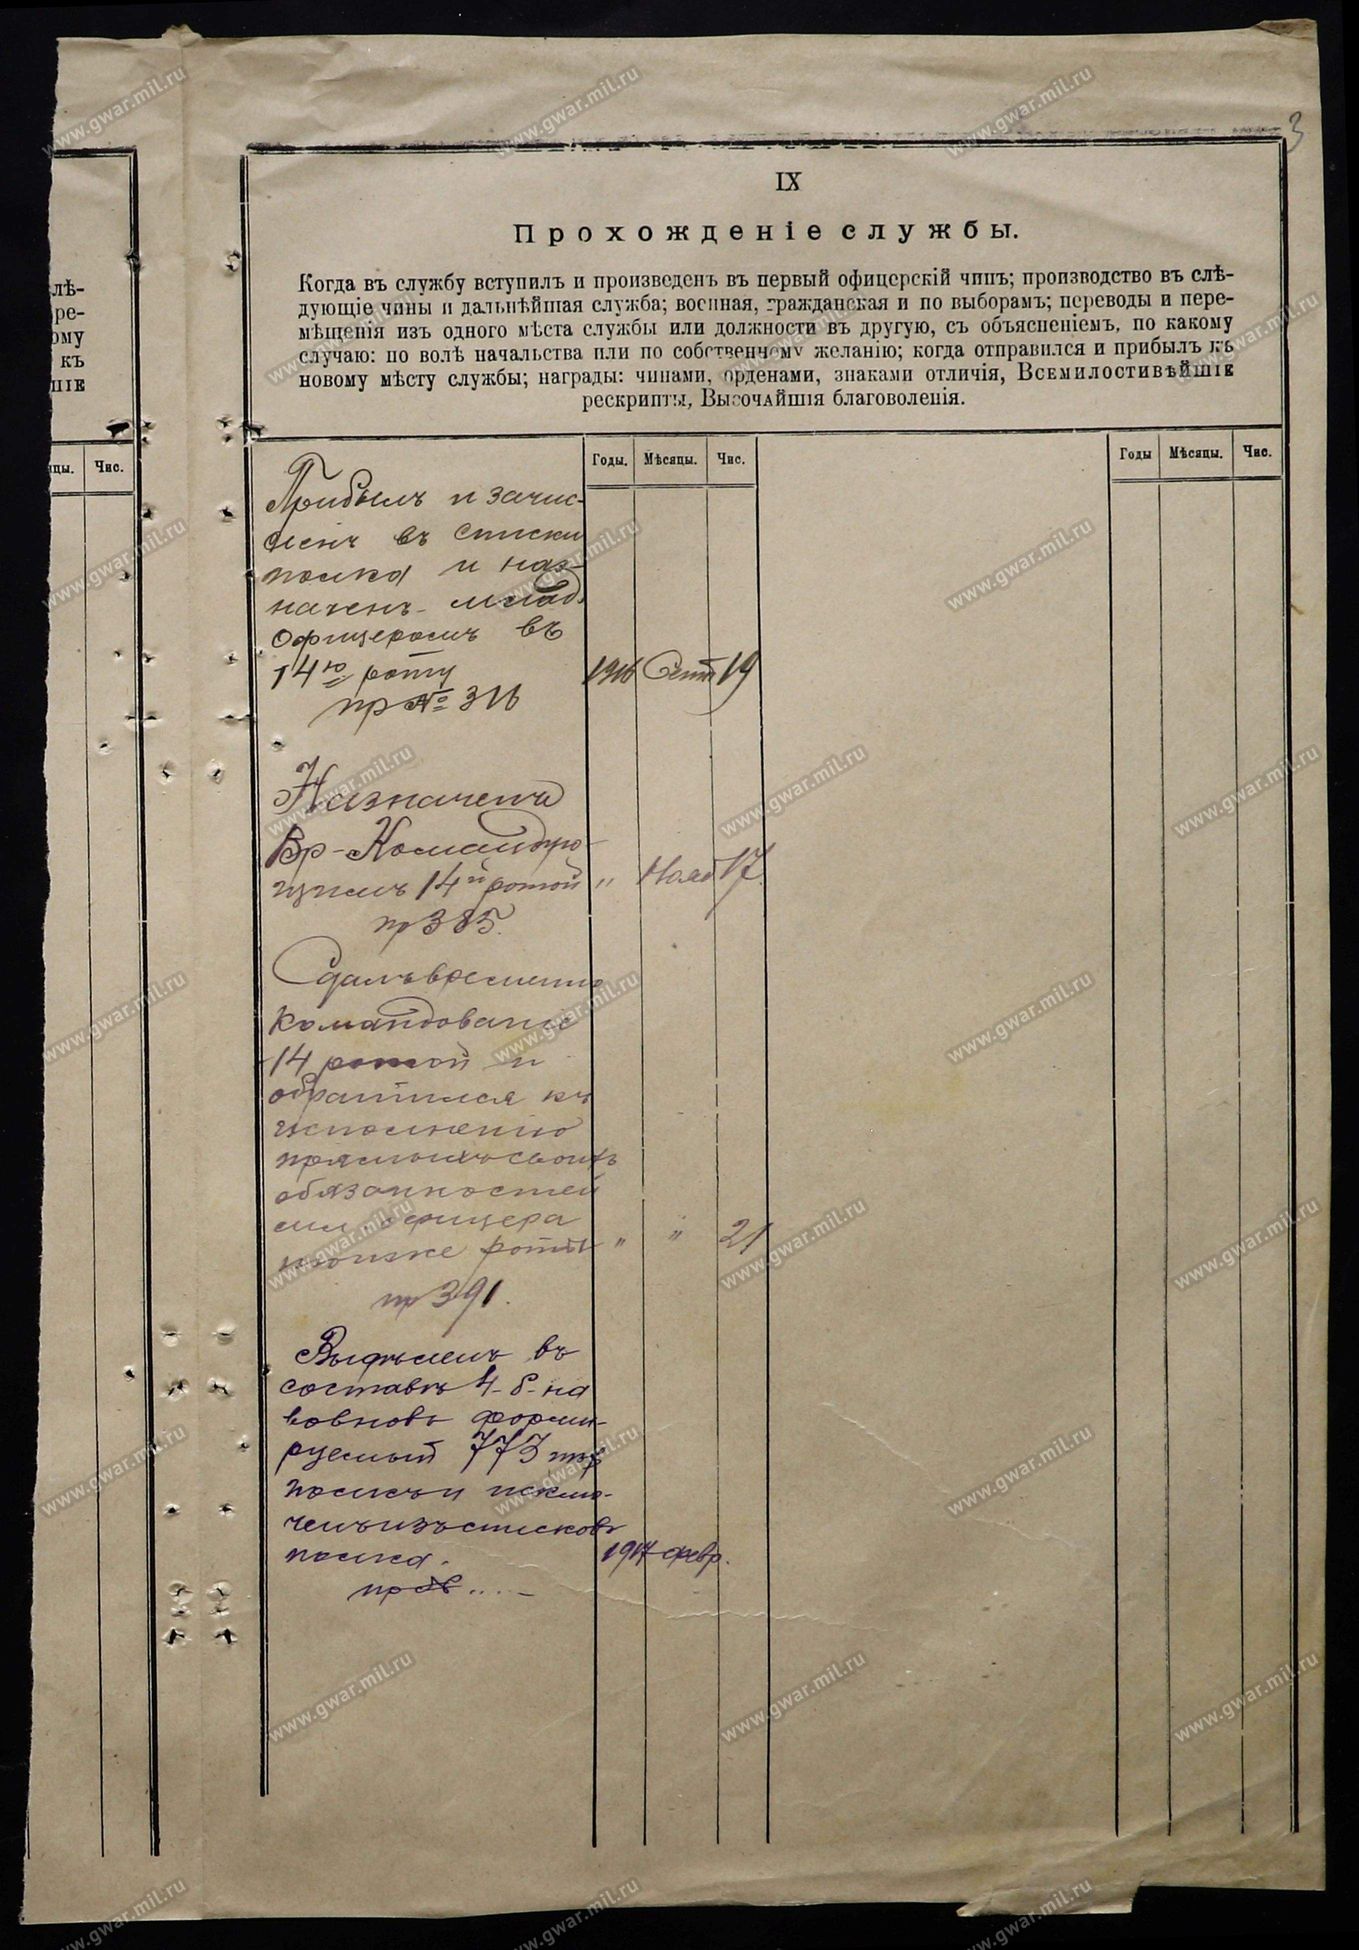 3
IX
Прохожденіе службы.
Когда въ службу вступилъ и произведенъ въ первый офицерскій чинъ; производство въ слѣ-
дующіе чины и дальнѣйшая служба; военная, гражданская и по выборамъ; переводы и пере-
мѣщенія изъ одного мѣста службы или должности въ другую, съ объясненіемъ, по какому
случаю: по волѣ начальства или по собственному желанію; когда отправился и прибылъ къ
новому мѣсту службы; награды: чинами, орденами, знаками отличія, Всемилостивѣйшіе
рескрипты, Высочайшія благоволенія.
лѣ-
ре-
ому
къ
шіе
яцы. Чис.
Годы. Мѣсяцы. Чис.
Годы Мѣсяцы. Чис.
Прибылъ и зачис-
ленъ въ списки
полка и наз-
наченъ млад.
офицеромъ въ
14ю роту 1916 Сент 19
пр № 316
Назначенъ
Вр-Командую-
щимъ 14й ротой " Нояб 17.
пр 385.
Сдалъ временно
командование
14 ротой и
обратился къ
исполнению
прямыхъ своихъ
обязанностей
мл. офицера
тойже роты " " 21
пр 391.
въ
составъ 4-б-на
вовновь форми-
руемый 773 пѣх
полкъ и исклю-
ченъ изъ списковъ
полка. 1917 февр.
пр № .... –
www.gwar.mil.ru